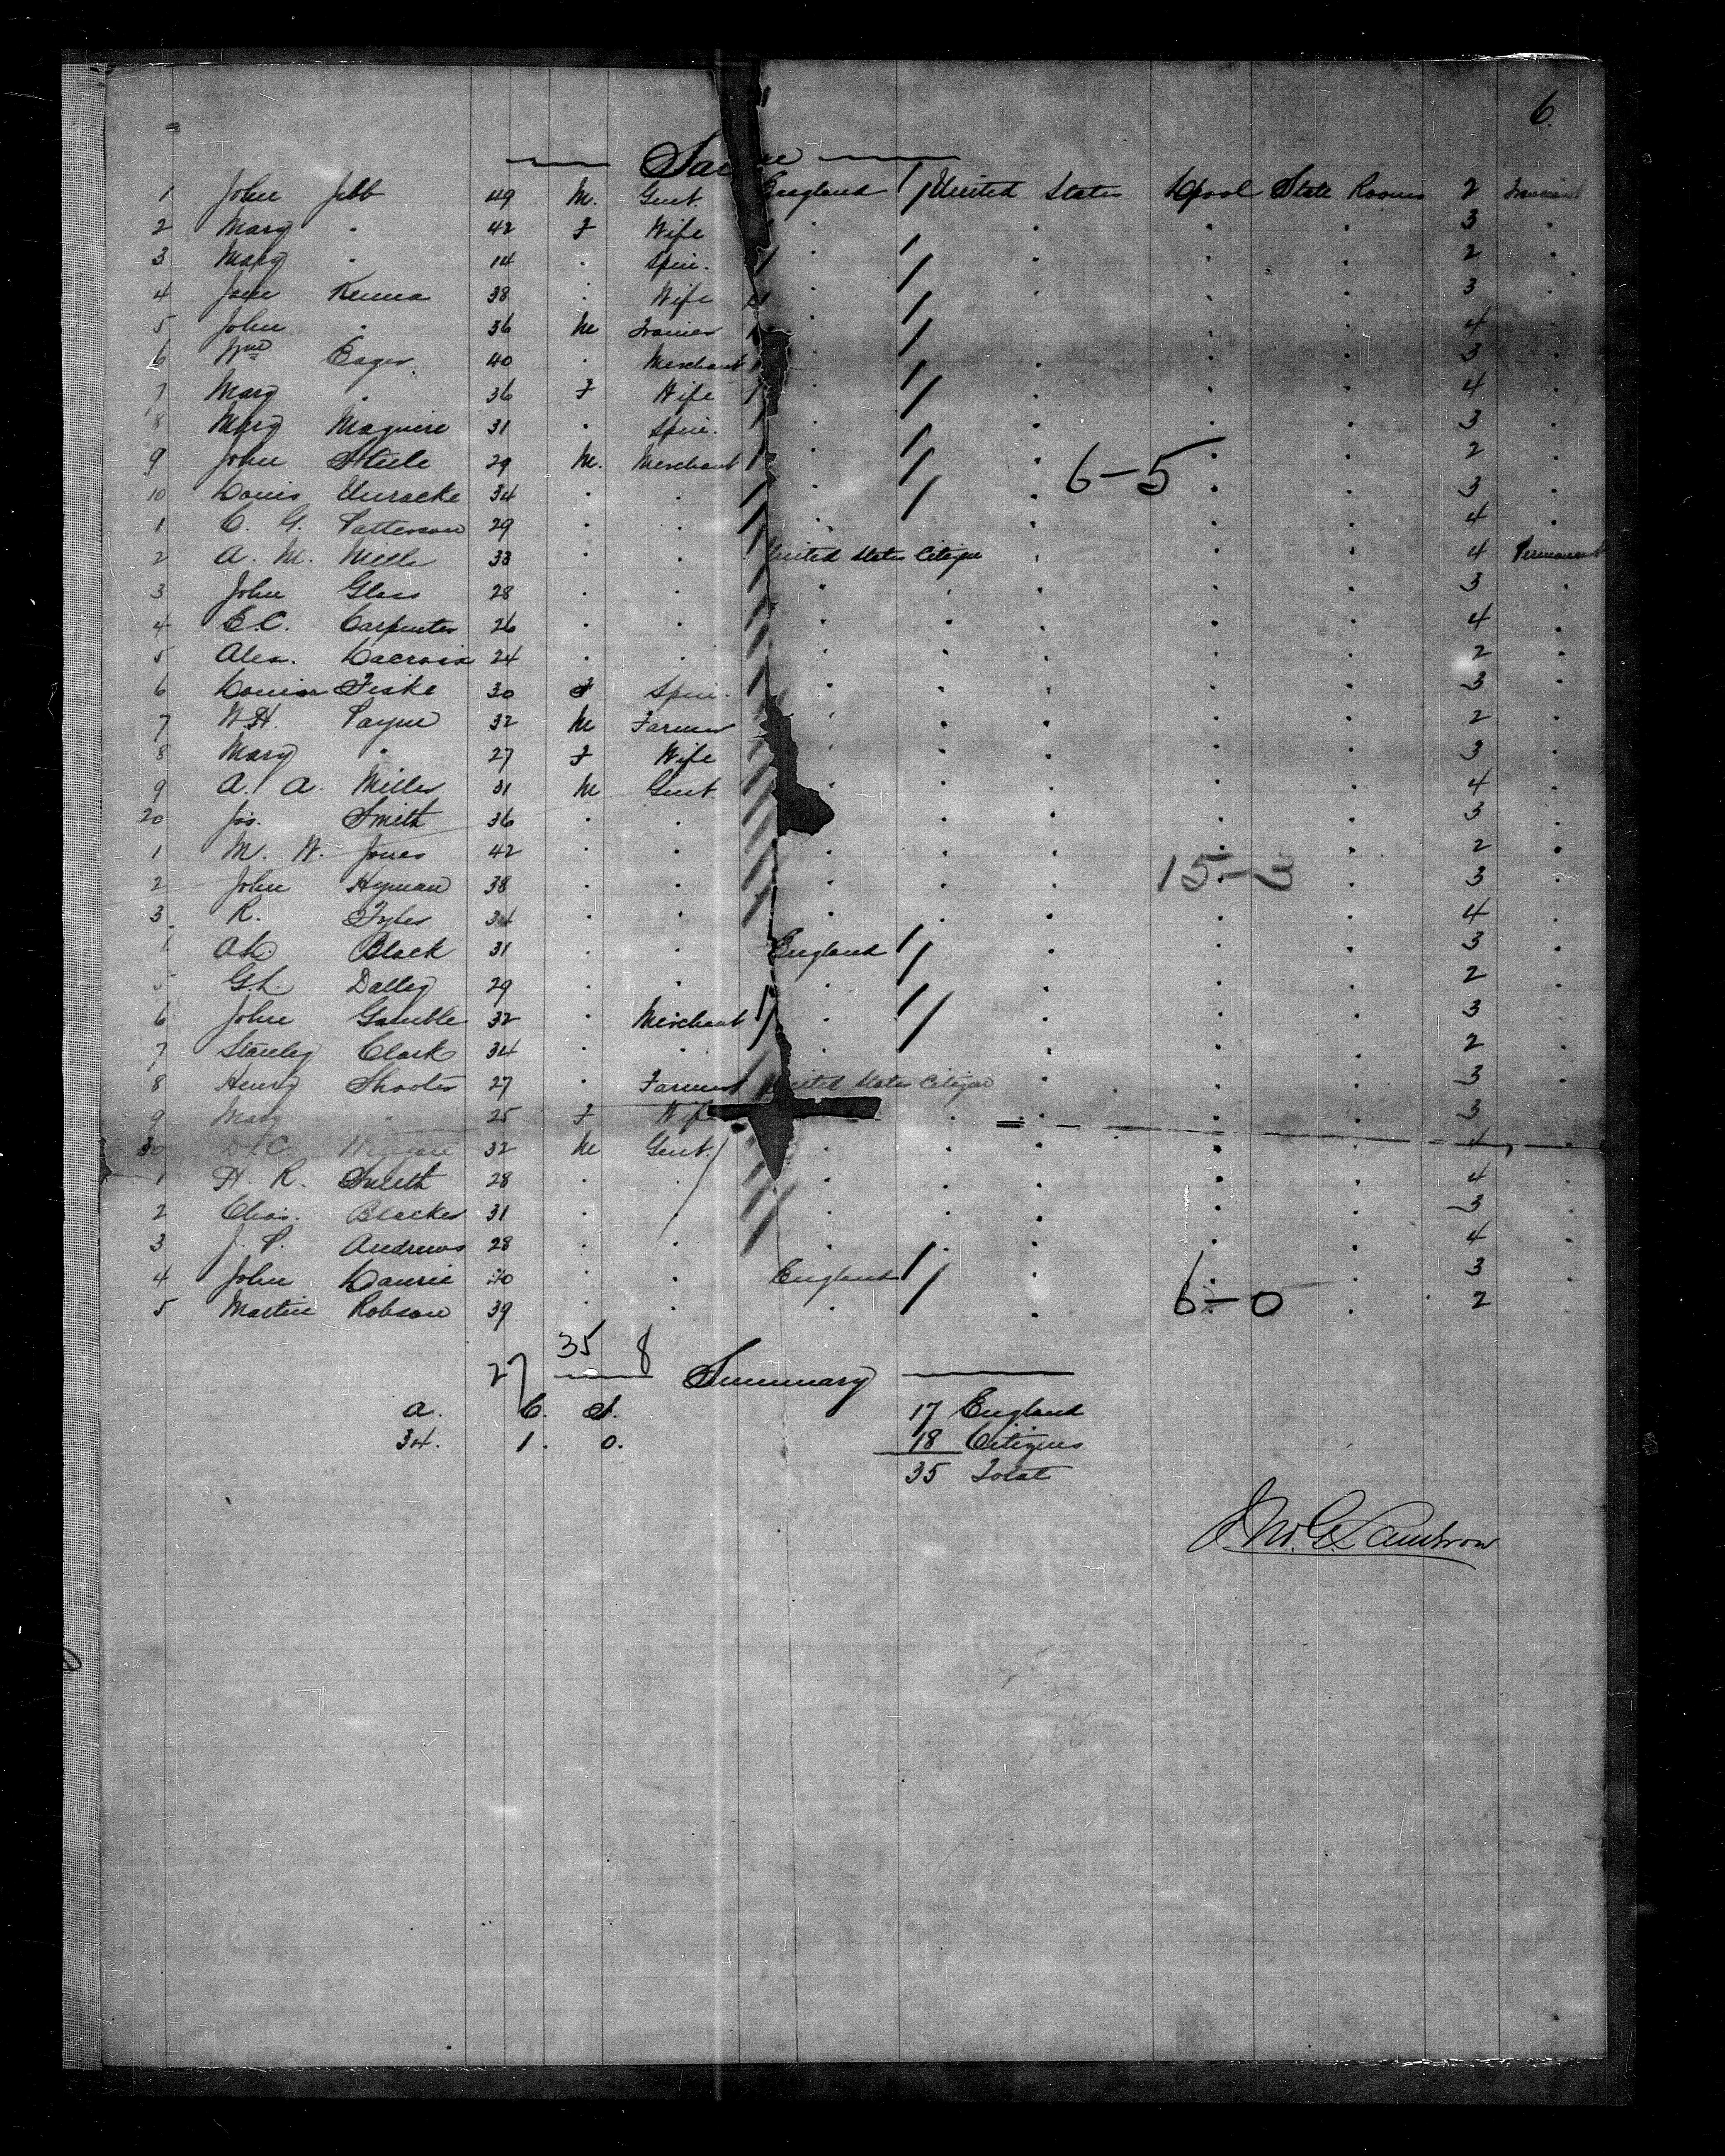 6.
1 John Jebb 49 M. Gent. England United States Lpool State Rooms 2 Transient
2 Mary " 42 F Wife " " " " 3 "
3 Mary " 14 " Spin. " " " " 2 "
4 Jane Kenna 38 " Wife " " " " 3 "
5 John " 36 M " " " " 4 "
6 Wm Eager 40 " Merchant " " " " 3 "
7 Mary " 36 F Wife " " " " 4 "
8 Mary Maguire 31 " Spin. " " " " 3 "
9 John Steele 29 M. Merchant " " " " 2 "
6-5
10 Louis 34 " " " " " " 3 "
1 C. G. Patterson 29 " " " " " " 4 "
2 A. M. 33 " " United States Citizen " " " 4 Permanent
3 John Glass 28 " " " " " " " 3 "
4 E.C. Carpenter 26 " " " " " " " 4 "
5 Alex. Lacroix 24 " " " " " " " 2 "
6 Louisa Fiske 30 F Spin. " " " " " 3 "
7 W.H. Payne 32 M Farmer " " " " 2 "
8 Mary " 27 F Wife " " " " 3 "
9 A. A. Miller 31 M Gent. " " " " " 4 "
20 Jos. Smith 36 " " " " " " 3 "
1 M. W. Jones 42 " " " " " " " 2 "
15-3
2 John Hyman 38 " " " " " " 3 "
3 R. Tyler 34 " " " " " " " 4 "
Black 31 " " England " " " 3 "
5 G.L. Dalley 29 " " " " " " 2 "
6 John Gamble 32 " Merchant " " " " 3 "
7 Stanley Clark 34 " " " " " " 2 "
8 Henry Shooter 27 " Farmer United States Citizen " " " 3 "
9 Mary " 25 F Wife " " " " 3 "
30 D.C. 32 M Gent. " " " " " 4 "
1 H. R. Smith 28 " " " " " " " 4 "
2 Chas. Blacker 31 " " " " " " " 3 "
3 J. P. Andrews 28 " " " " " " " 4 "
4 John Laurie " " England " " " 3 "
5 Martin Robson 39 " " " " " " 2 "
6-0
35 8
27 Summary
A. C. I. 17 England
34. 1. 0. 18 Citizens
35 Total
Jno. G.